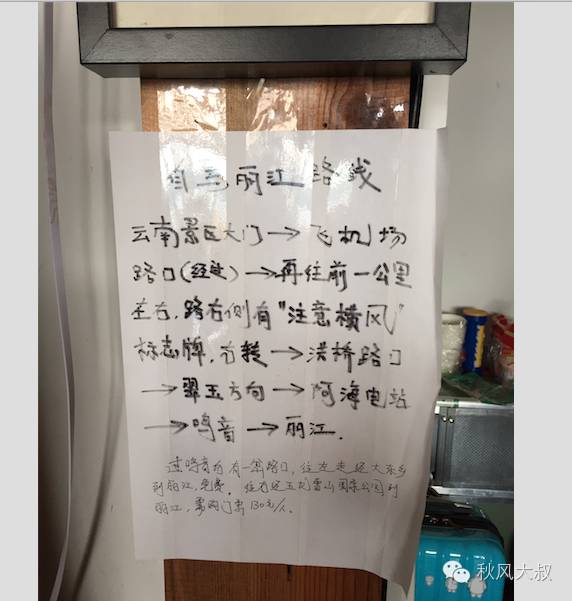 自驾丽江路线
云南景区大门→飞机场
路口(经过)→再往前一公里
左右,路右侧有"注意横风"
标志牌,右转→洪桥路口
→翠玉方向→阿海电站
→鸣音→丽江.
过鸣音后有一岔路口,往左走经大东乡
到丽江,免费。往右经玉龙雪山国家公园到
丽江,需购门票130元/人。
秋风大叔